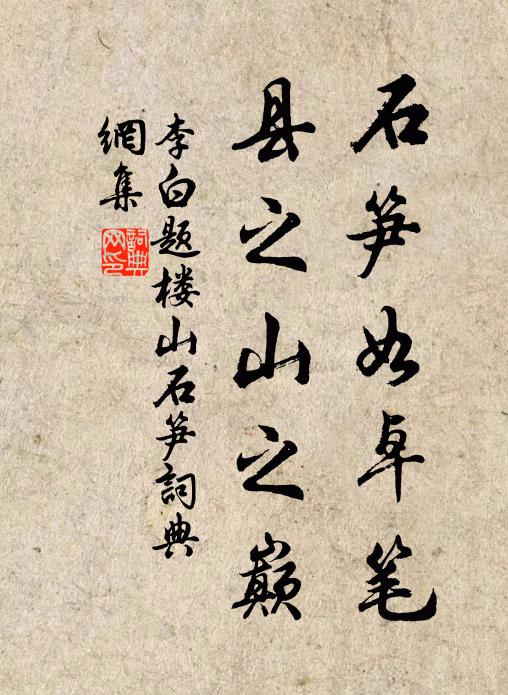 石笋如卓笔
县之山之巅
李白题楼山石笋词典
網集
詞典网印